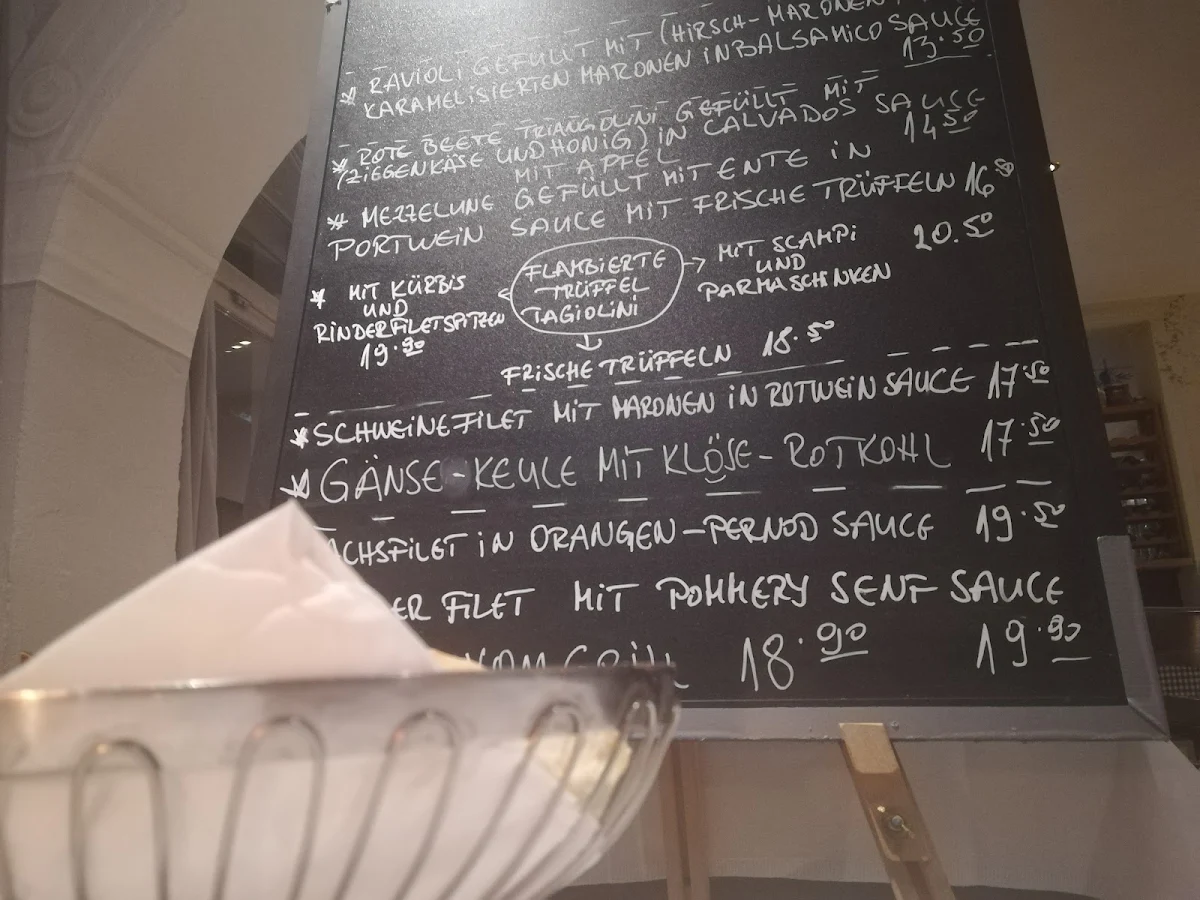 * RAVIOLI GEFÜLLT MIT (HIRSCH-MARONEN
KARAMELISIERTEN MARONEN IN BALSAMICO SAUCE
13.50
* ROTE BEETE TRIANGOLINI GEFÜLLT MIT
(ZIEGENKÄSE UND HONIG) IN CALVADOS SAUCE
MIT APFEL 14.50
* MEZZELUNE GEFÜLLT MIT ENTE IN
PORTWEIN SAUCE MIT FRISCHE TRÜFFELN 16.50
FLAMBIERTE
TRÜFFEL
TAGIOLINI
MIT SCAMPI
UND
PARMASCHINKEN
20.50
* MIT KÜRBIS
UND
RINDERFILETSPITZEN
19.90
FRISCHE TRÜFFELN 18.50
* SCHWEINEFILET MIT MARONEN IN ROTWEIN SAUCE 17.50
* GÄNSE-KEULE MIT KLÖSE-ROTKOHL 17.50
ACHSFILET IN ORANGEN-PERNOD SAUCE 19.50
ER FILET MIT POMMERY SENF SAUCE
19.90
VOM GRILL 18.90